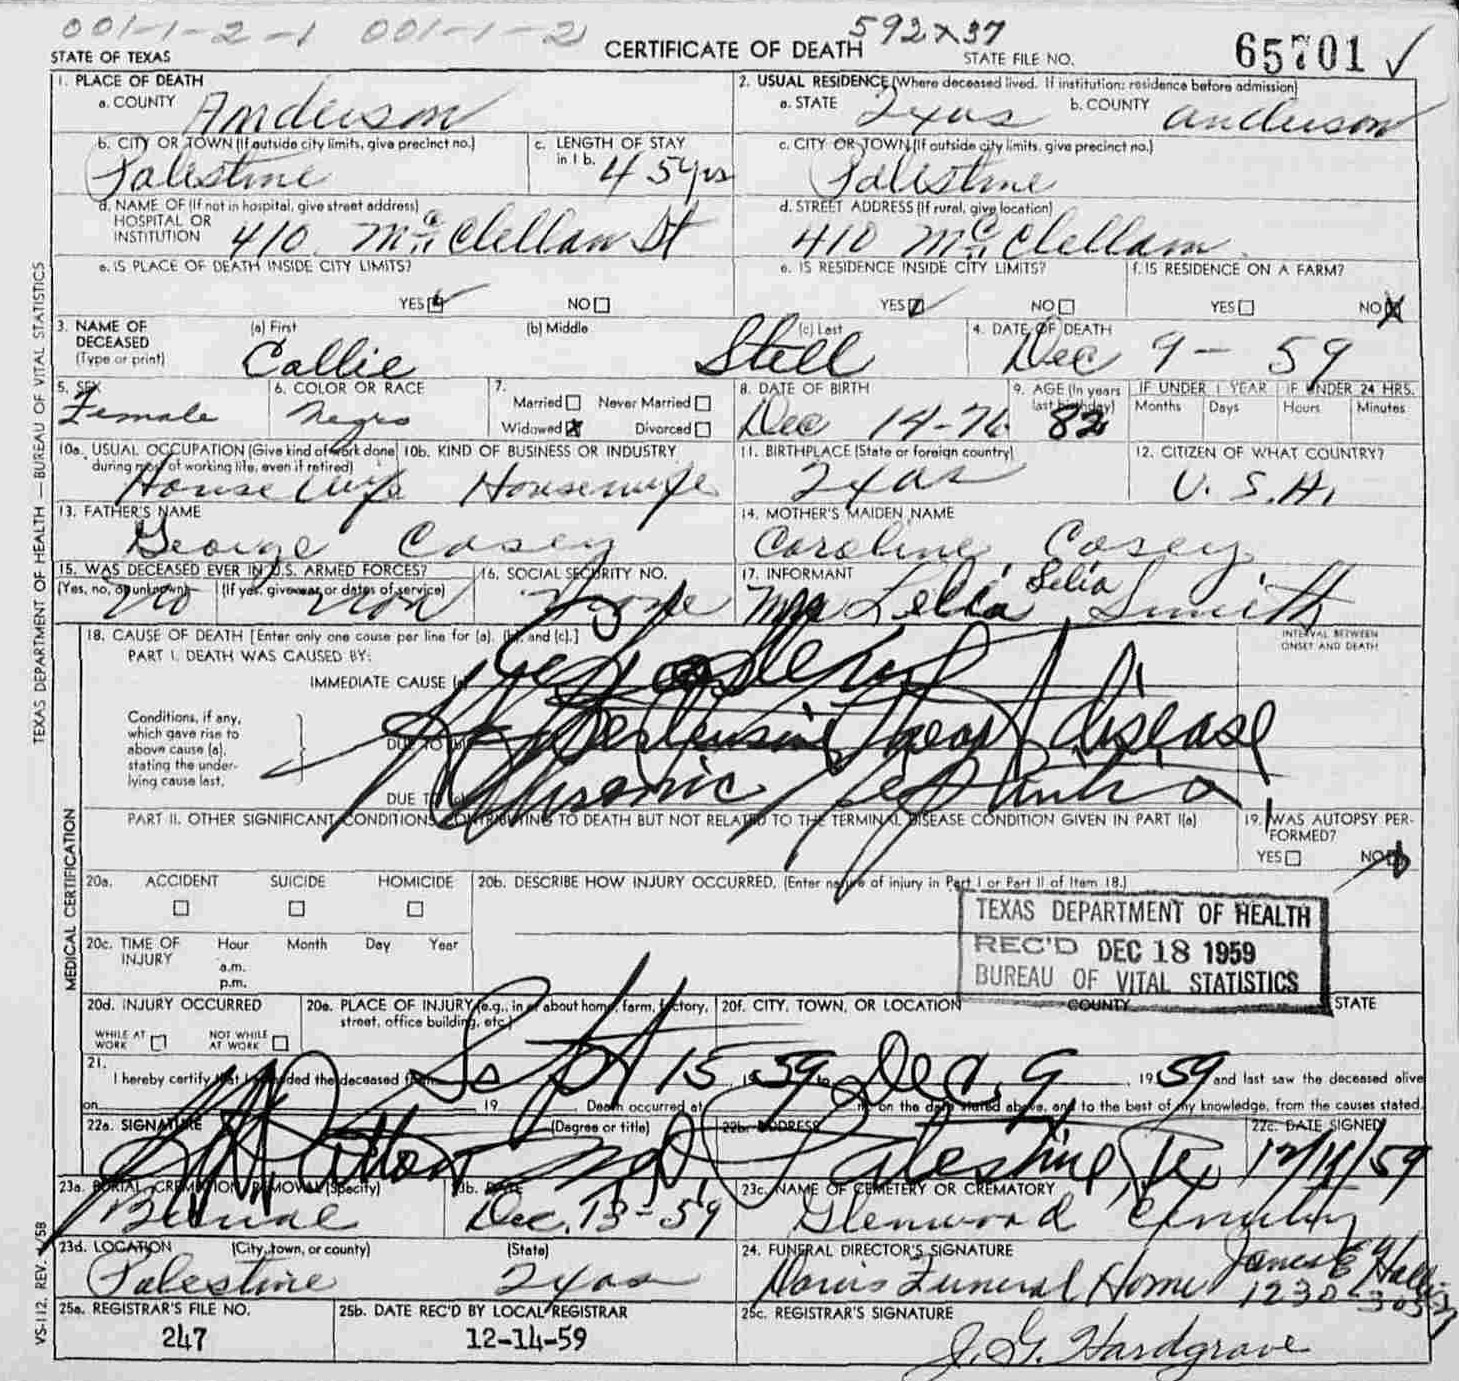 001-1-2-1 001-1-2
592x37
STATE OF TEXAS
CERTIFICATE OF DEATH
STATE FILE NO.
65701 ✓
TEXAS DEPARTMENT OF HEALTH — BUREAU OF VITAL STATISTICS
1. PLACE OF DEATH
a. COUNTY Anderson
2. USUAL RESIDENCE (Where deceased lived. If institution: residence before admission)
a. STATE Texas b. COUNTY Anderson
b. CITY OR TOWN (If outside city limits, give precinct no.)
Palestine
c. LENGTH OF STAY in 1 b.
45 yrs
c. CITY OR TOWN (If outside city limits, give precinct no.)
Palestine
d. NAME OF (If not in hospital, give street address)
HOSPITAL OR
INSTITUTION 410 McClellan St
d. STREET ADDRESS (If rural, give location)
410 McClellan
e. IS PLACE OF DEATH INSIDE CITY LIMITS?
YES NO
e. IS RESIDENCE INSIDE CITY LIMITS?
YES NO
f. IS RESIDENCE ON A FARM?
YES NO
3. NAME OF DECEASED (Type or print)
(a) First (b) Middle (c) Last
Callie Stell
4. DATE OF DEATH
Dec 9 - 59
5. SEX
Female
6. COLOR OR RACE
Negro
7.
Married Never Married
Widowed Divorced
8. DATE OF BIRTH
Dec 14-76
9. AGE (In years last birthday)
82
IF UNDER 1 YEAR IF UNDER 24 HRS.
Months Days Hours Minutes
10a. USUAL OCCUPATION (Give kind of work done during most of working life, even if retired)
House Wife
10b. KIND OF BUSINESS OR INDUSTRY
Housewife
11. BIRTHPLACE (State or foreign country)
Texas
12. CITIZEN OF WHAT COUNTRY?
U.S.A.
13. FATHER'S NAME
George Casey
14. MOTHER'S MAIDEN NAME
Caroline Casey
15. WAS DECEASED EVER IN U.S. ARMED FORCES?
(Yes, no, or unknown) (If yes, give war or dates of service)
No
16. SOCIAL SECURITY NO.
None
17. INFORMANT
Mrs Lelia Smith
MEDICAL CERTIFICATION
18. CAUSE OF DEATH [Enter only one cause per line for (a), (b), and (c).]
INTERVAL BETWEEN ONSET AND DEATH
PART I. DEATH WAS CAUSED BY:
IMMEDIATE CAUSE (a)
Conditions, if any,
which gave rise to
above cause (a),
stating the under-
lying cause last.
DUE TO (b) Hypertensive heart disease
DUE TO (c) Chronic Nephritis
PART II. OTHER SIGNIFICANT CONDITIONS CONTRIBUTING TO DEATH BUT NOT RELATED TO THE TERMINAL DISEASE CONDITION GIVEN IN PART I(a)
19. WAS AUTOPSY PERFORMED?
YES NO
20a. ACCIDENT SUICIDE HOMICIDE
20b. DESCRIBE HOW INJURY OCCURRED. (Enter nature of injury in Part I or Part II of Item 18.)
TEXAS DEPARTMENT OF HEALTH
REC'D DEC 18 1959
BUREAU OF VITAL STATISTICS
20c. TIME OF INJURY Hour Month Day Year
a.m.
p.m.
20d. INJURY OCCURRED
WHILE AT WORK NOT WHILE AT WORK
20e. PLACE OF INJURY (e.g., in or about home, farm, factory, street, office building, etc.)
20f. CITY, TOWN, OR LOCATION COUNTY STATE
21.
I hereby certify that I attended the deceased from Sept 15, 1959 to Dec. 9, 1959 and last saw the deceased alive
on 19 . Death occurred at m on the date stated above, and to the best of my knowledge, from the causes stated.
22a. SIGNATURE (Degree or title)
MD
22b. ADDRESS
Palestine, Tex
22c. DATE SIGNED
12/11/59
23a. BURIAL, CREMATION, REMOVAL (Specify)
Burial
23b. DATE
Dec. 13-59
23c. NAME OF CEMETERY OR CREMATORY
Glenwood Cemetery
23d. LOCATION (City, town, or county) (State)
Palestine Texas
24. FUNERAL DIRECTOR'S SIGNATURE
Davis Funeral Home James E Hall
25a. REGISTRAR'S FILE NO.
247
25b. DATE REC'D BY LOCAL REGISTRAR
12-14-59
25c. REGISTRAR'S SIGNATURE
J. G. Hardgrave